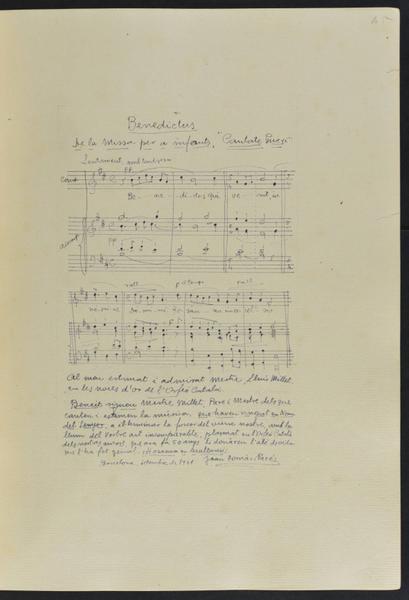 Benedictus
De la Missa per a infants, "Cantate Pueri"
Lentament, amb tendresa
Cant
pp
Be-ne-di-ctus qui ve-nit, in
Acomp
pp
rall
p a tempo
rall
no-mi-ne Do-mi-ni Ho-san-na in ex-cel-sis
Al meu estimat i admirat mestre Lluís Millet
en les noces d'or de l'Orfeó Català
Beneït sigueu Mestre Millet, Pare i Mestre dels que
canten i estimen la música, que haveu vingut en Nom
del Senyor, a il·luminar la foscor del viure nostre, amb la
llum del vostre art incomparable, plasmat en l'Orfeó Català
dels nostres amors, que ara fa 50 anys li donàreu l'alè
Hosanna
Barcelona setembre de 1941 Joan Tomàs Parés